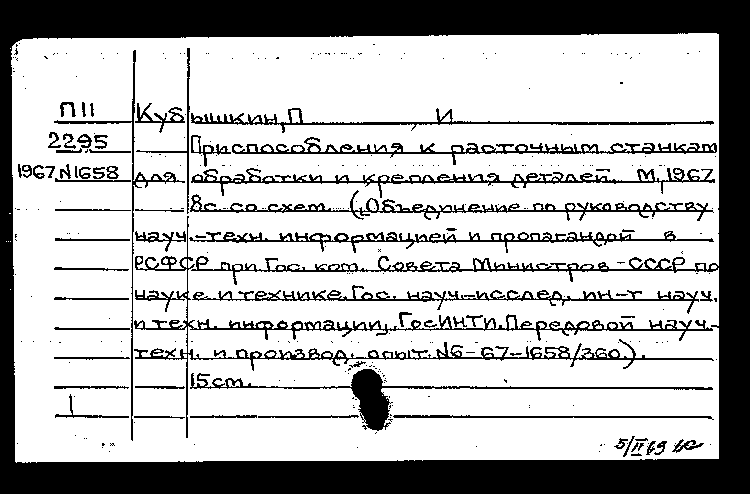 П11 Кубышкин, П И
2295 Приспособления к расточным станкам
1967, N1658 для обработки и крепления деталей. М, 1967
8с. со схем. (Объединение по руководству
науч.-техн. информацией и пропагандой в
РСФСР при Гос. ком. Совета Министров СССР по
науке и технике. Гос. науч.-исслед. ин-т науч.
и техн. информации, ГосИНТИ. Передовой науч.-
техн. и производ. опыт. N6-67-1658/360).
15 cm.
1
5/II 69